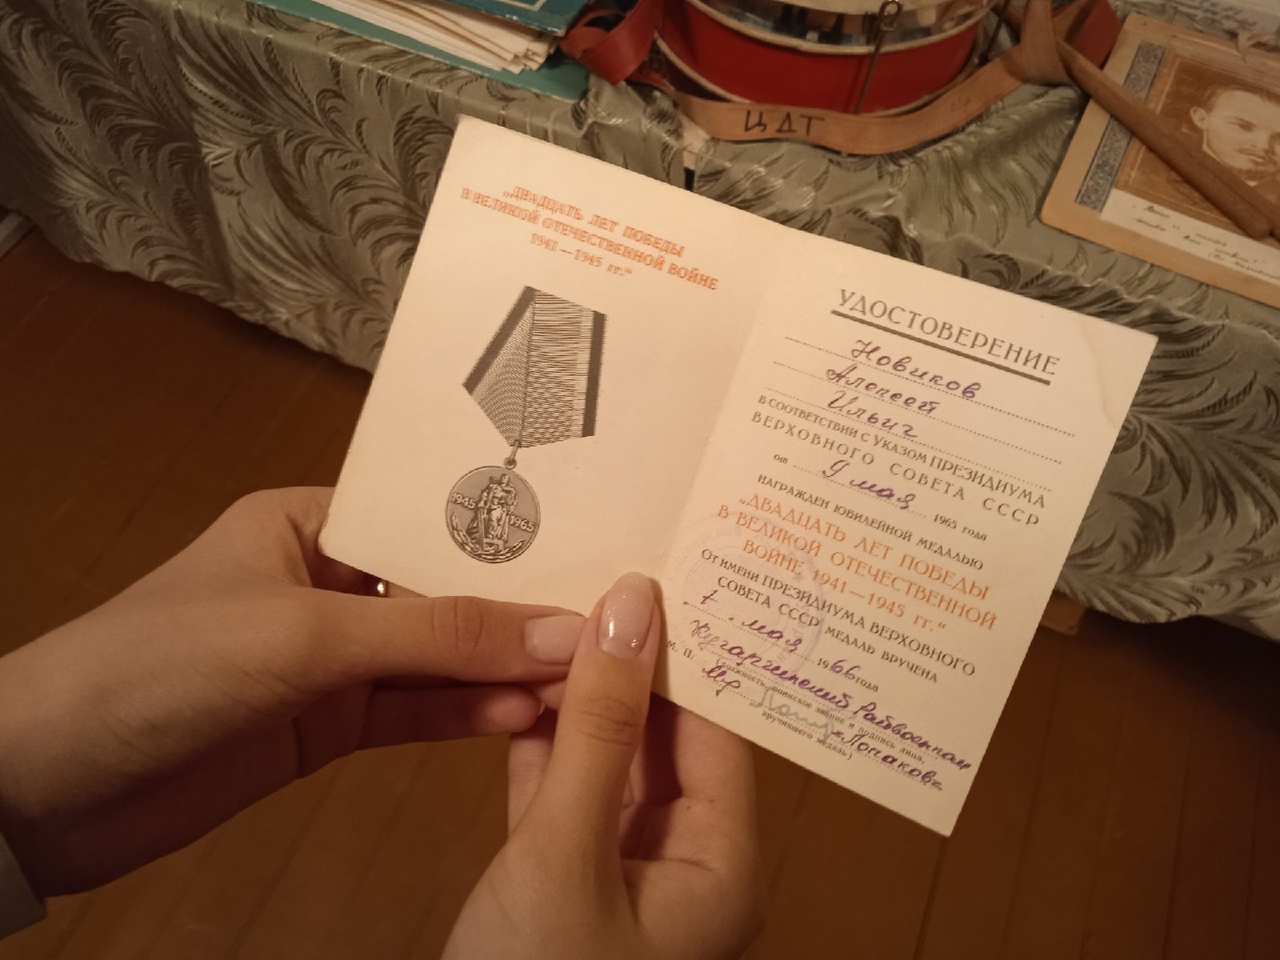 ЦДТ
„ДВАДЦАТЬ ЛЕТ ПОБЕДЫ
В ВЕЛИКОЙ ОТЕЧЕСТВЕННОЙ ВОЙНЕ
1941—1945 гг.“
1945 1965
УДОСТОВЕРЕНИЕ
Новиков
Алексей
Ильич
В СООТВЕТСТВИИ С УКАЗОМ ПРЕЗИДИУМА
ВЕРХОВНОГО СОВЕТА СССР
от 9 мая 1965 года
НАГРАЖДЕН ЮБИЛЕЙНОЙ МЕДАЛЬЮ
„ДВАДЦАТЬ ЛЕТ ПОБЕДЫ
В ВЕЛИКОЙ ОТЕЧЕСТВЕННОЙ
ВОЙНЕ 1941—1945 гг.“
ОТ ИМЕНИ ПРЕЗИДИУМА ВЕРХОВНОГО
СОВЕТА СССР МЕДАЛЬ ВРУЧЕНА
7 мая 1966 года
Кугарчинский Райвоенком
М. П. (должность, воинское звание и подпись лица,
Лопаков
вручившего медаль)